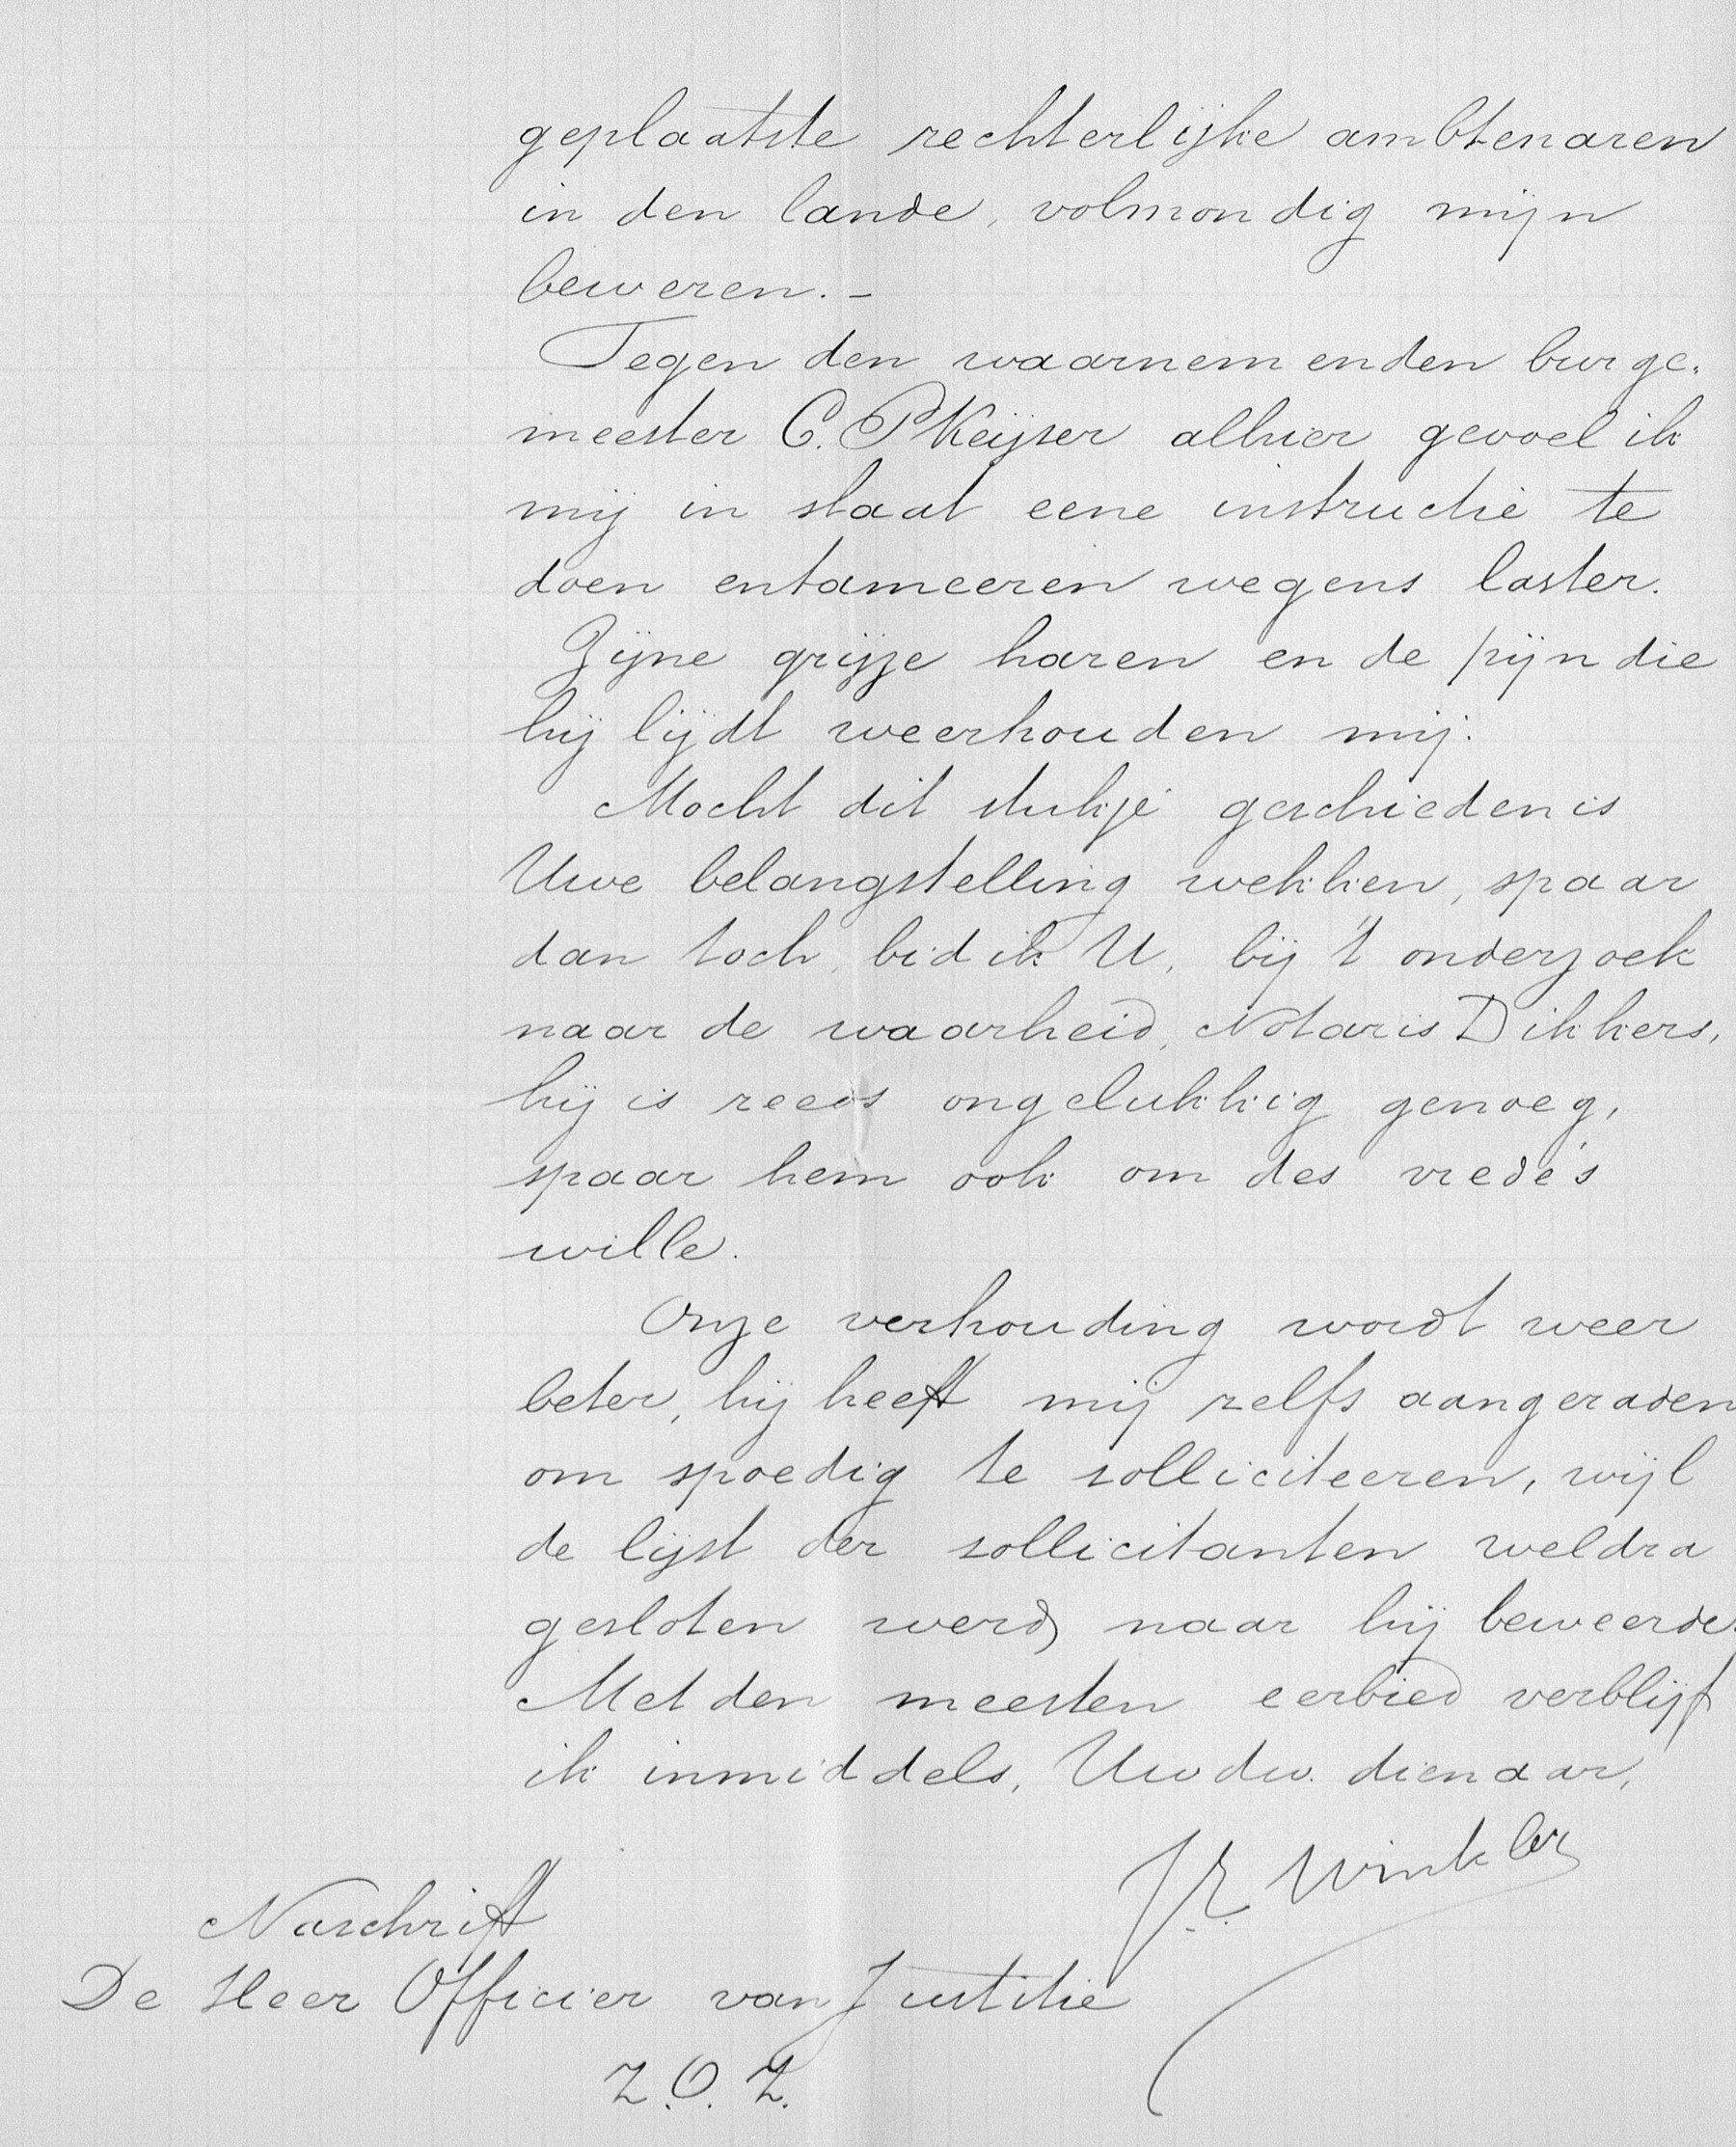 geplaatste rechterlijke ambtenaren
in den lande, volmondig mijn
beweren. -
Tegen den waarnemenden burge-
meester C. P Keijser alhier gevoel ik
mij in staat eene instructie te
doen entameeren wegens laster.
Zijne grijze haren en de pijn die
hij lijdt weerhouden mij.
Mocht dit stukje geschiedenis
Uwe belangstelling wekken, spaar
dan toch, bid ik U, bij 't onderzoek
naar de waarheid, Notaris Dikkers,
hij is reeds ongelukkig genoeg,
spaar hem ook om des vrede's
wille.
Onze verhouding wordt weer
beter, hij heeft mij zelfs aangeraden
om spoedig te solliciteeren, wijl
de lijst der sollicitanten weldra
gesloten werd, naar hij beweerde.
Met den meesten eerbied verblijf
ik inmiddels, Uwdw. dienaar,
J. E. Winkler
Naschrift
De Heer Officier van Justitie
Z.O.Z.